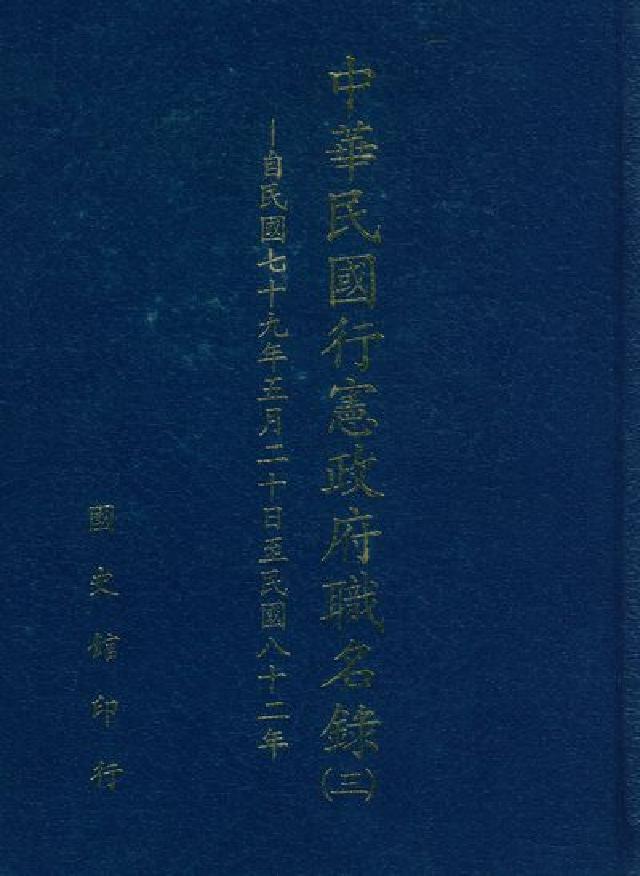 中華民國行憲政府職名錄(三)
—自民國七十九年五月二十日至民國八十二年
國史館印行